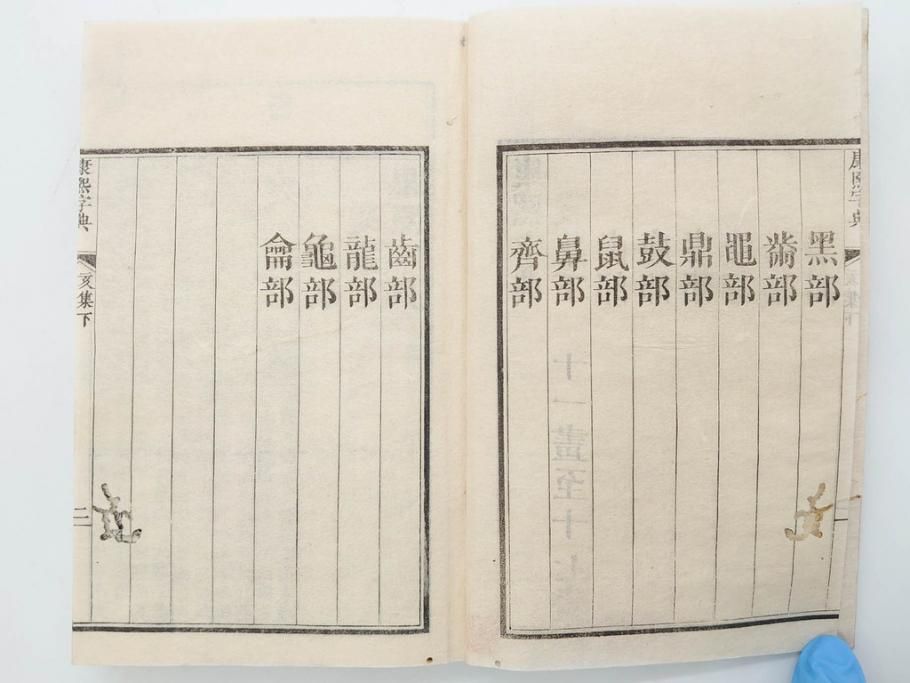 康熙字典
黑部
黹部
黽部
鼎部
鼓部
鼠部
鼻部
齊部
齒部
龍部
龜部
龠部
康熙字典
亥集下
二